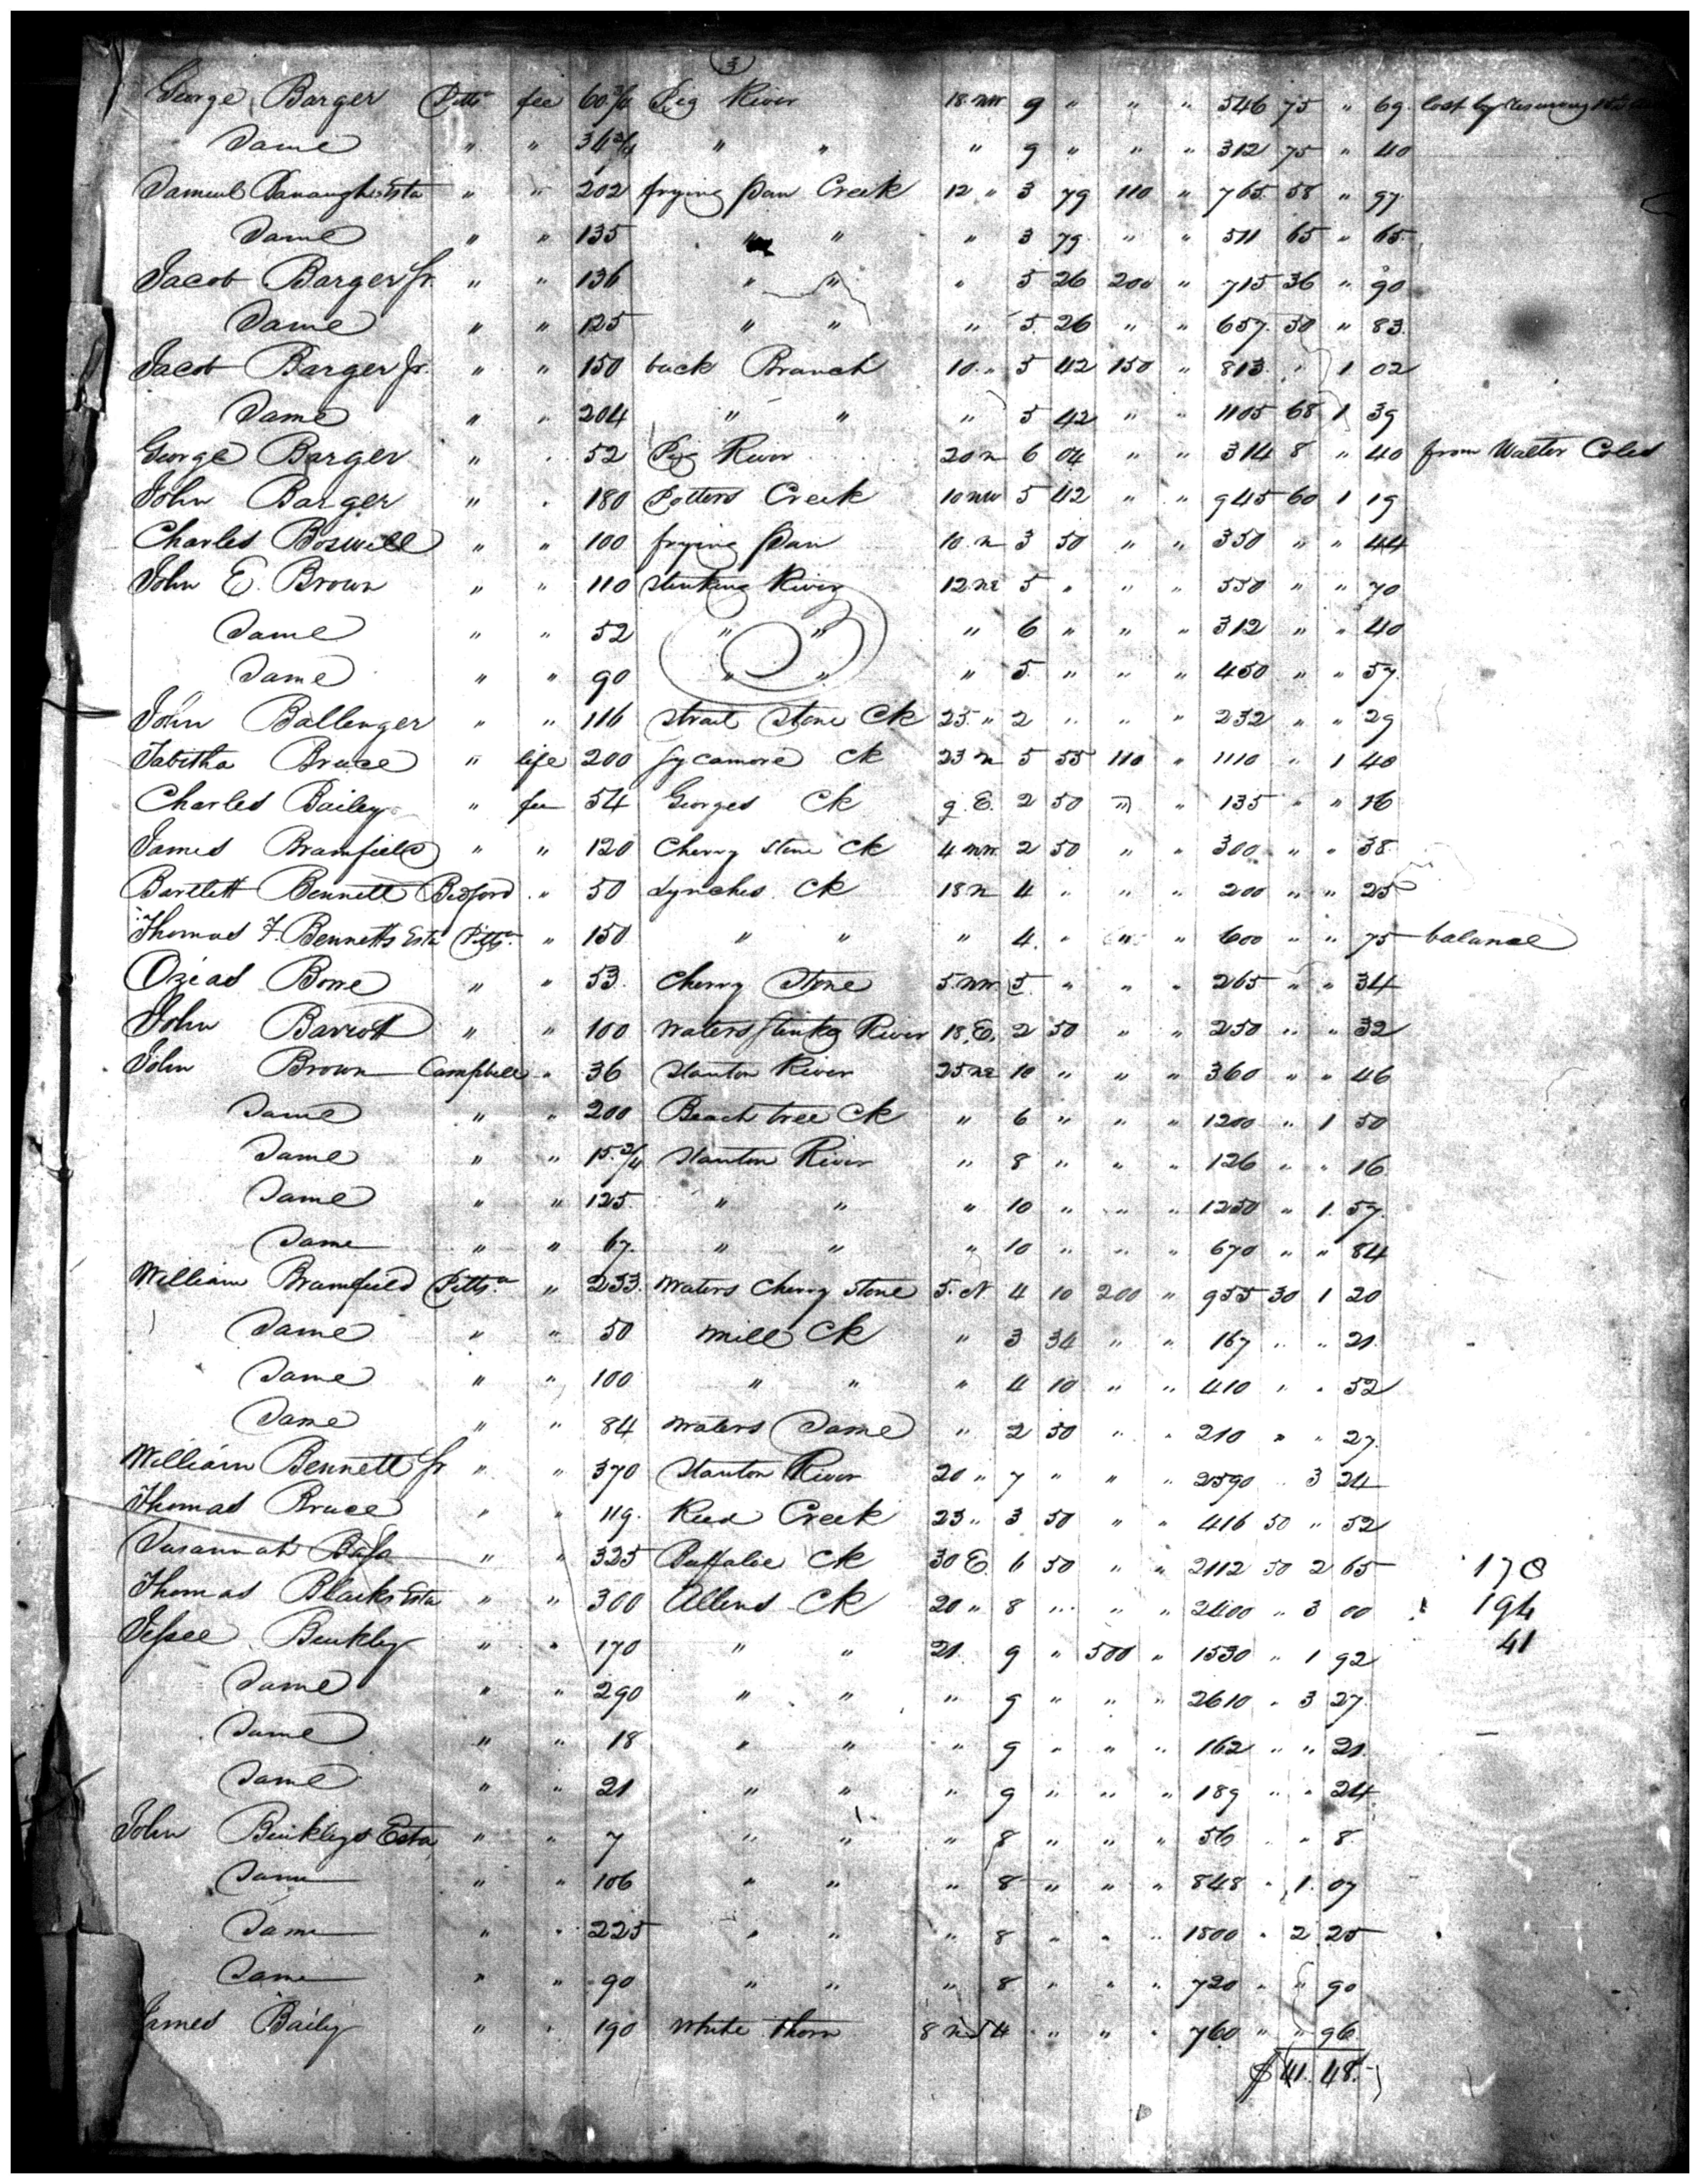 3
George Barger Pitts.a fee 60 3/4 Pig River 18 nw 9 " " " 546 75 " 69 lost by
Same " " 34 3/4 " " " 9 " " " 312 75 " 40
Samuel Esta " " 202 frying Pan Creek 12 " 3 79 110 " 765 58 " 97
Same " " 135 " " " 3 79 " " 511 65 " 65
Jacob Barger Sr. " " 136 " " " 5 26 200 " 715 36 " 90
Same " " 125 " " " 5 26 " " 657 50 " 83
Jacob Barger Jr. " " 150 back Branch 10 " 5 42 150 " 813 " 1 02
Same " " 204 " " " 5 42 " " 1105 68 1 39
George Barger " " 52 Pig River 20 n 6 04 " " 314 8 " 40 from Walter Coles
John Barger " " 180 Potters Creek 10 nw 5 42 " " 945 60 1 19
Charles Boswell " " 100 frying Pan 10 n 3 50 " " 350 " " 44
John E. Brown " " 110 Stinking River 12 ne 5 " " " 550 " " 70
Same " " 52 " " " 6 " " " 312 " " 40
Same " " 90 " " " 5 " " " 450 " " 57
John Ballenger " " 116 Strait Stone Ck 25 " 2 " " " 232 " " 29
Tabitha Bruce " life 200 Sycamore Ck 23 n 5 55 110 " 1110 " 1 40
Charles Bailey " fee 54 Georges Ck 9 E. 2 50 " " 135 " " 16
James Bramfield " " 120 Cherry Stone Ck 4 nw. 2 50 " " 300 " " 38
Bartlett Bennett Bedford " 50 Lynches Ck 18 n 4 " " " 200 " " 25
Thomas F. Bennetts Esta Pitts.a " 150 " " " 4 " " " 600 " " 75 balance
Ozias Bowe " " 53 Cherry Stone 5 nw. 5 " " " 265 " " 34
John Barrott " " 100 Waters Stinkg River 18 E. 2 50 " " 250 " " 32
John Brown Campbell " 36 Stanton River 25 ne 10 " " " 360 " " 46
Same " " 200 Beach tree Ck " 6 " " " 1200 " 1 50
Same " " 15 3/4 Stanton River " 8 " " " 126 " " 16
Same " " 125 " " " 10 " " " 1250 " 1 57
Same " " 67 " " " 10 " " " 670 " " 84
William Bramfield Pitts.a " 233 Waters Cherry Stone 5 N 4 10 200 " 955 30 1 20
Same " " 50 Mill Ck " 3 34 " " 167 " " 21
Same " " 100 " " " 4 10 " " 410 " " 52
Same " " 84 Waters Same " 2 50 " " 210 " " 27
William Bennett Sr " " 370 Stanton River 20 " 7 " " " 2590 " 3 24
Thomas Bruce " " 119 Reed Creek 23 " 3 50 " " 416 50 " 52
Susannah Bass " " 325 Buffaloe Ck 30 E. 6 50 " " 2112 50 2 65 178
Thomas Blacks Esta " " 300 Allens Ck 20 " 8 " " " 2400 " 3 00 194
Jesse Binkley " " 170 " " 21 9 " 500 " 1530 " 1 92 41
Same " " 290 " " " 9 " " " 2610 " 3 27
Same " " 18 " " " 9 " " " 162 " " 21
Same " " 21 " " " 9 " " " 189 " " 24
John Binkleys Esta " " 7 " " " 8 " " " 56 " " 8
Same " " 106 " " " 8 " " " 848 " 1 07
Same " " 225 " " " 8 " " " 1800 " 2 25
Same " " 90 " " " 8 " " " 720 " " 90
James Baily " " 190 White Thorn 8 4 " " " 760 " " 96
$ 41.48